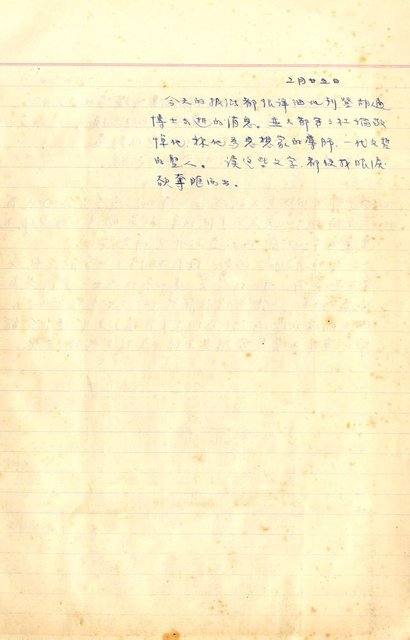 二月廿五日
今天的报纸都很详细地刊登胡适
博士去逝的消息。并大都有了社论敬
悼他，称他为思想家的导师，一代文哲
的圣人。读这些文字，都使我眼泪
欲夺眶而出。